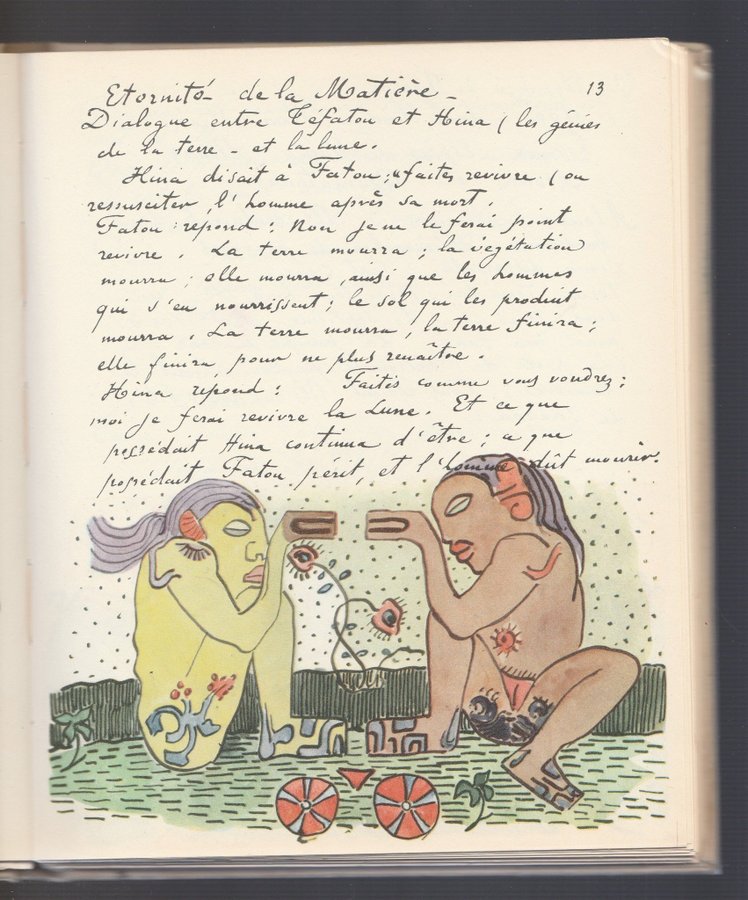 13
Eternité de la Matière -
Dialogue entre Téfatou et Hina (les génies
de la terre - et la lune.
Hina disait à Fatou : "faites revivre (ou
ressusciter l'homme après sa mort.
Fatou répond : Non je ne le ferai point
revivre. La terre mourra ; la végétation
mourra ; elle mourra, ainsi que les hommes
qui s'en nourrissent ; le sol qui les produit
mourra. La terre mourra, la terre finira ;
elle finira pour ne plus renaître.
Hina répond : Faites comme vous voudrez ;
moi je ferai revivre la Lune. Et ce que
possédait Hina continua d'être ; ce que
possédait Fatou périt, et l'homme dût mourir.